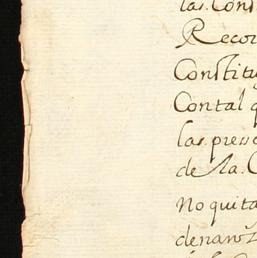 las. Cons
Recor
Constitu
Contal q
las. press
de la. C
No quita
denarnz